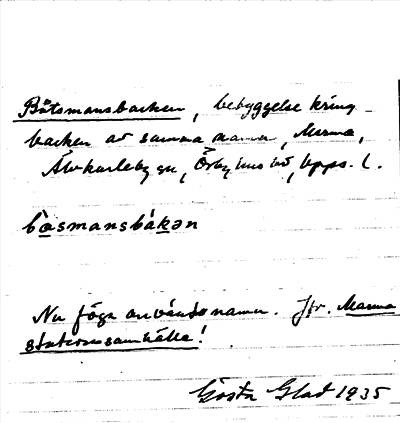 Båtsmansbacken, bebyggelse kring
backen av samma namn, Marma,
Älvkarleby sn, Örbyhus hd, Upps. l.
båsmansbákən
Nu föga använt namn. Jfr. Marma
stationssamhälle!
Gösta Glad 1935